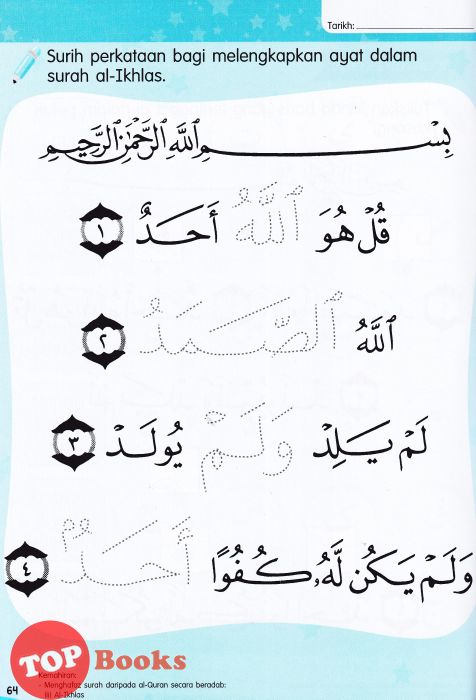 Tarikh:
Surih perkataan bagi melengkapkan ayat dalam
surah al-Ikhlas.
بِسْــــــمِ ٱللَّهِ ٱلرَّحْمَٰنِ ٱلرَّحِيمِ
قُلْ هُوَ ٱللَّهُ أَحَدٌ ١
ٱللَّهُ ٱلصَّــمَــدُ ٢
لَمْ يَــلِدْ وَلَمْ يُولَــدْ ٣
وَلَمْ يَكُن لَّهُۥ كُــفُوًا أَحَــدٌۢ ٤
TOP Books
Kemahiran:
- Menghafaz surah daripada al-Quran secara beradab:
(ii) Al-Ikhlas
64